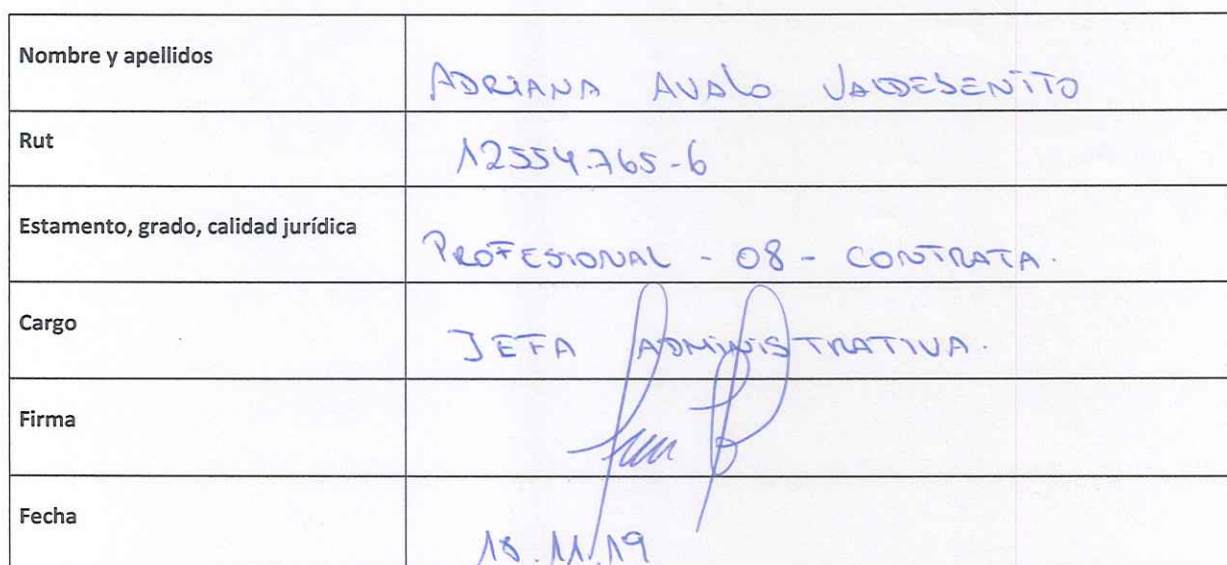 Nombre y apellidos
ADRIANA AVALO VALDEBENITO
Rut
12554.765-6
Estamento, grado, calidad jurídica
PROFESIONAL - 08 - CONTRATA.
Cargo
JEFA ADMINISTRATIVA.
Firma
Fecha
18.11.19